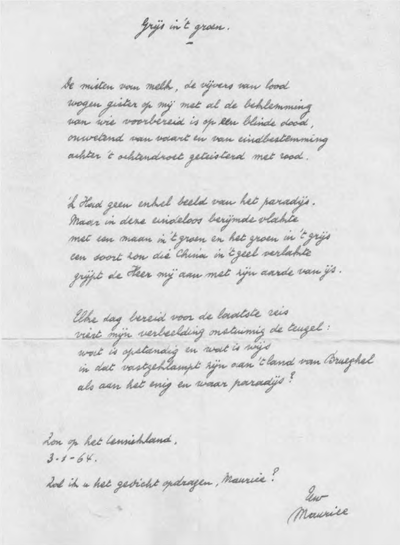 Grijs in 't groen.
De misten van melk, de vijvers van lood
wogen gister op mij met al de beklemming
van wie voorbereid is op een blinde dood,
onwetend van vaart en van eindbestemming
achter 't ochtendroet geteisterd met rood.
'k Had geen enkel beeld van het paradijs.
Maar in deze eindeloos berijmde vlakte
met een maan in 't groen en het groen in 't grijs
een soort zon die China in 't geel verlakte
grijpt de Heer mij aan met zijn aarde van ijs.
Elke dag bereid voor de laatste reis
viert mijn verbeelding onstuimig de teugel:
wat is opstandig en wat is wijs
in dat vastgeklampt zijn aan 't land van Brueghel
als aan het enig en waar paradijs?
Zon op het Lennikland,
3-1-64.
Zal ik u het gedicht opdragen, Maurice?
Uw
Maurice